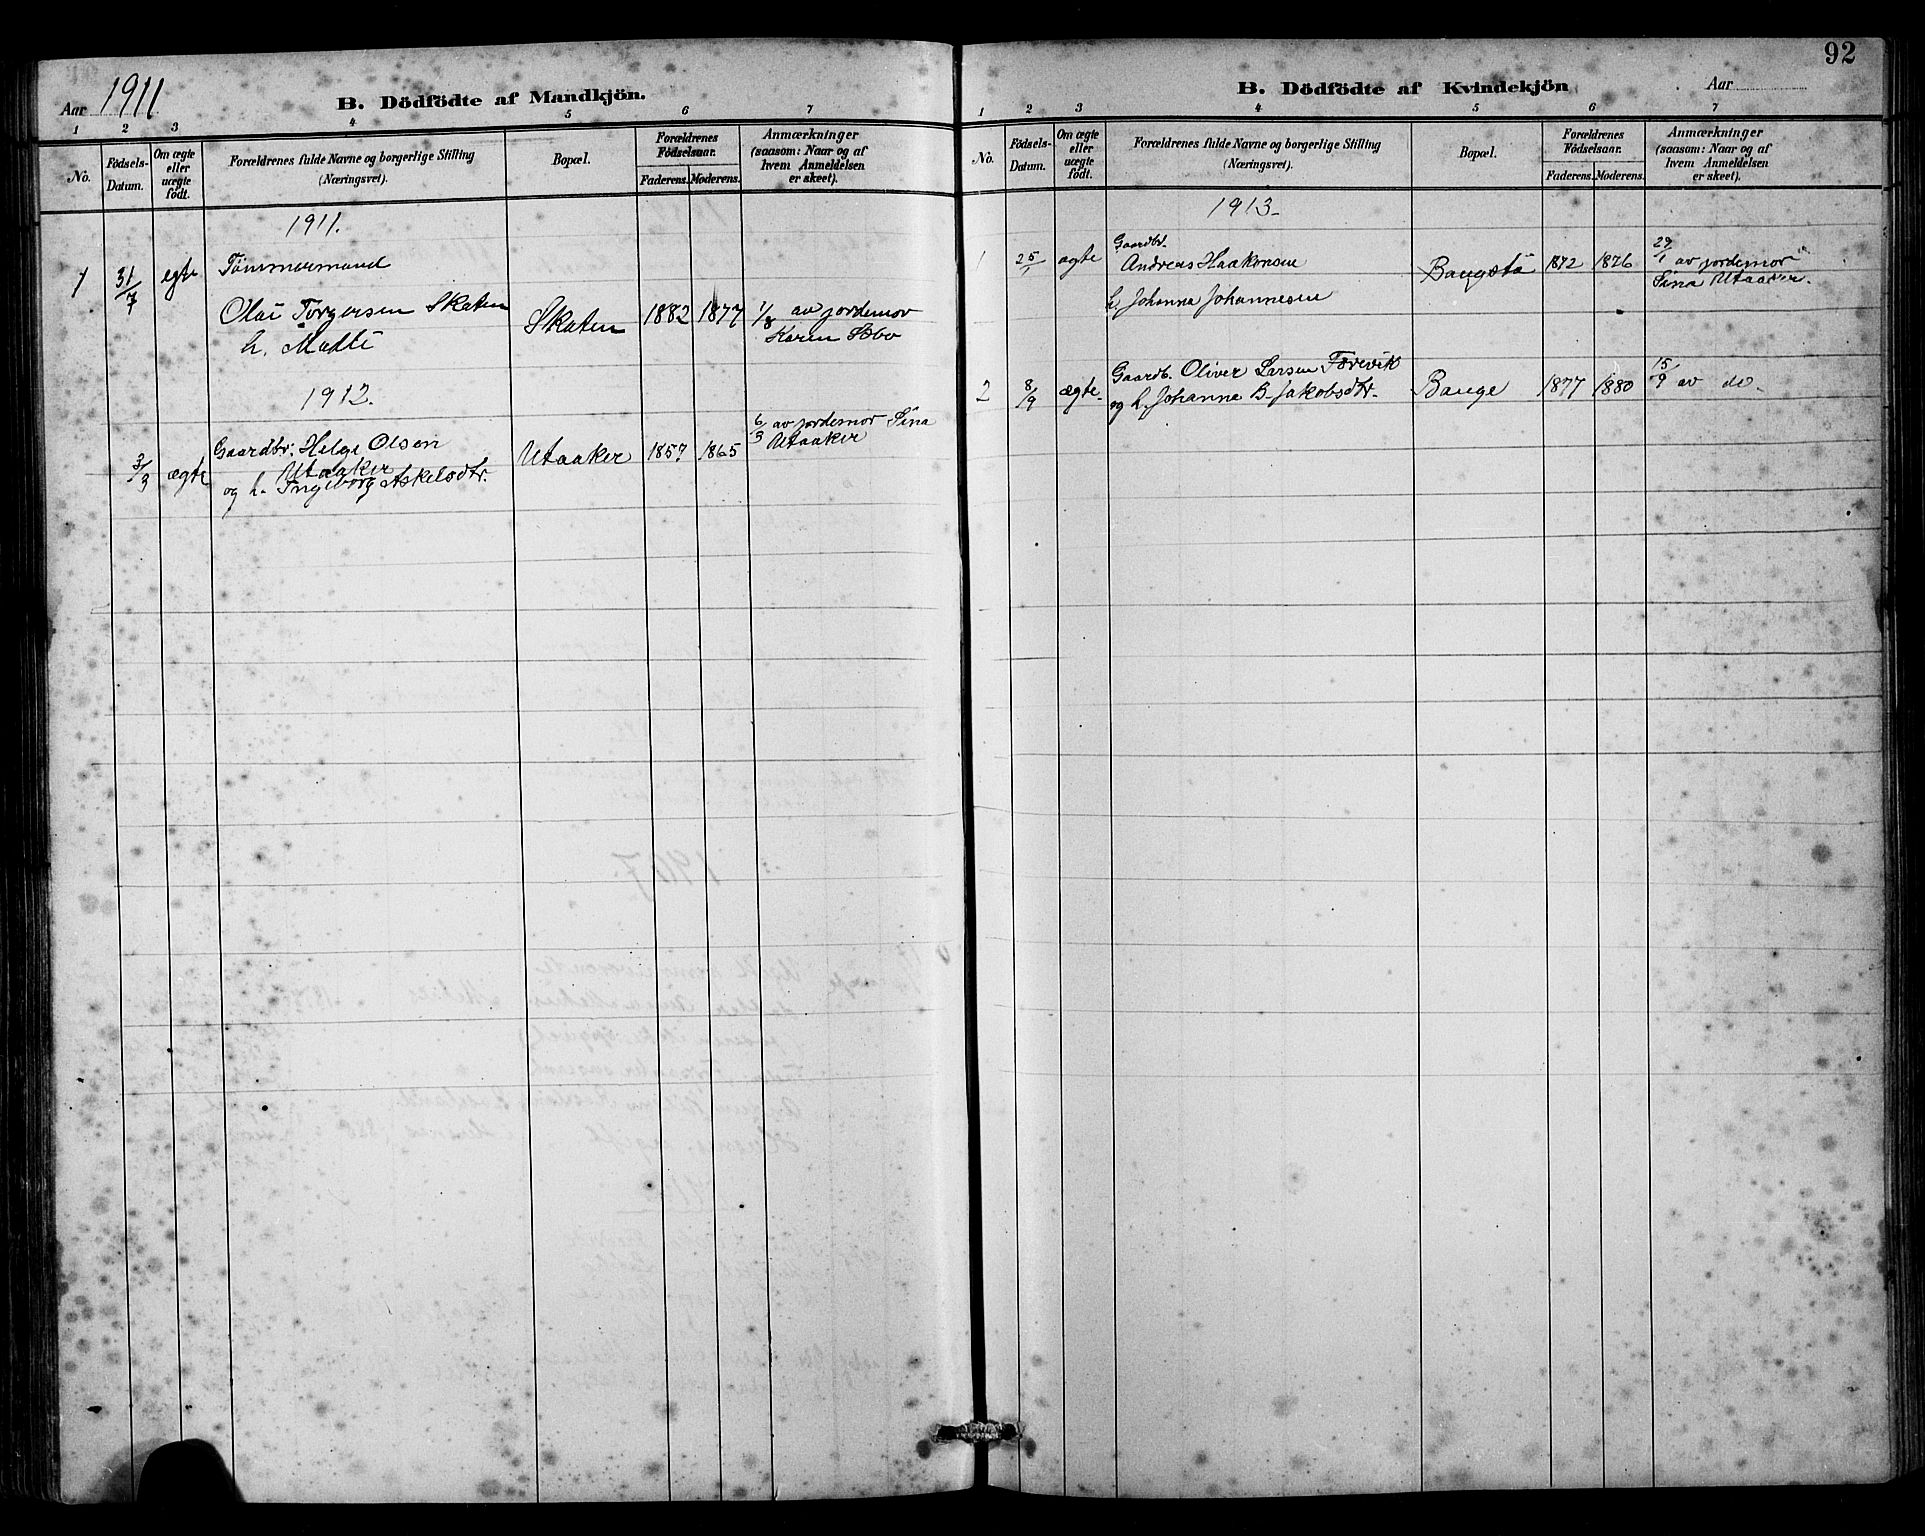 Aar 1911
B. Dödfödte af Mandkjön.
1 2 3 4 5 6 7
No.
Födsels-Datum.
Om ægte eller uægte födt.
Forældrenes fulde Navne og borgerlige Stilling (Næringsvei).
Bopæl.
Forældrenes Födselsaar.
Faderens. Moderens.
Anmærkninger (saasom: Naar og af hvem Anmeldelsen er skeet).
1911.
1 31/7 egte Tömmermand
Olai Torgersen Skaten
h. Malli
Skaten 1882 1877 1/8 av jordemor
Karen Æbø
1912.
3/3 ægte Gaardbr. Helge Olsen
Utaaker
og h. Ingeborg Askelsdtr.
Utaaker 1857 1865 6/3 av jordemor Sina
Utaaker
92
B. Dödfödte af Kvindekjön
Aar
1 2 3 4 5 6 7
No.
Födsels-Datum.
Om ægte eller uægte födt.
Forældrenes fulde Navne og borgerlige Stilling (Næringsvei).
Bopæl.
Forældrenes Födselsaar.
Faderens. Moderens.
Anmærkninger (saasom: Naar og af hvem Anmeldelsen er skeet).
1913.
1 25/1 ægte Gaardbr.
Andreas Haakonsen
h. Johanna Johannesen
Baugstö 1872 1876 29/1 av jordemor
Sina Utaaker.
2 8/9 ægte. Gaardb. Oliver Larsen Forevik
og h. Johanna B. Jakobsdtr.
Bauge 1877 1880 15/9 av do.